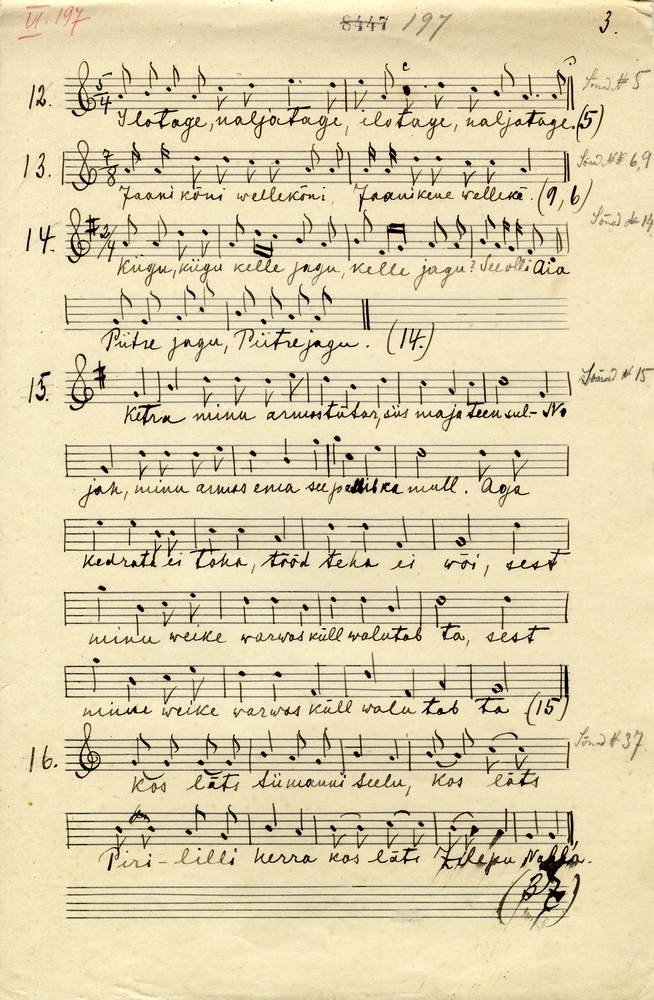 VI. 197 8447 197 3.
12. 5/4 Sõnad # 5
Ilotage, naljatage, ilotage, naljatage. (5)
13. 7/8 Sõnad ## 6,9
Jaani kõni wellekõni, Jaanikene wellekõ. (9, 6)
14. 2/4 Sõnad # 14
Kiigu, kiigu kelle jagu, kelle jagu? See olli Aia
Piitre jagu, Piitre jagu. (14.)
15. Sõnad # 15
Ketra minu armas tütar, siis maja teen sul. - No
jah, minu armas ema see palllib ka mull. Aga
kedrata ei taha, tööd teha ei wõi, sest
minu weike warwas küll walutab ta, sest
minu weike warwas küll walu tab ta (15)
16. Sõnad # 37.
Kos läts Siimanni Seelu, kos läts
Piri-lilli herra kos läts
(37)